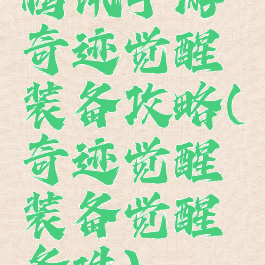 腾讯手游
奇迹觉醒
装备攻略(
奇迹觉醒
装备觉醒